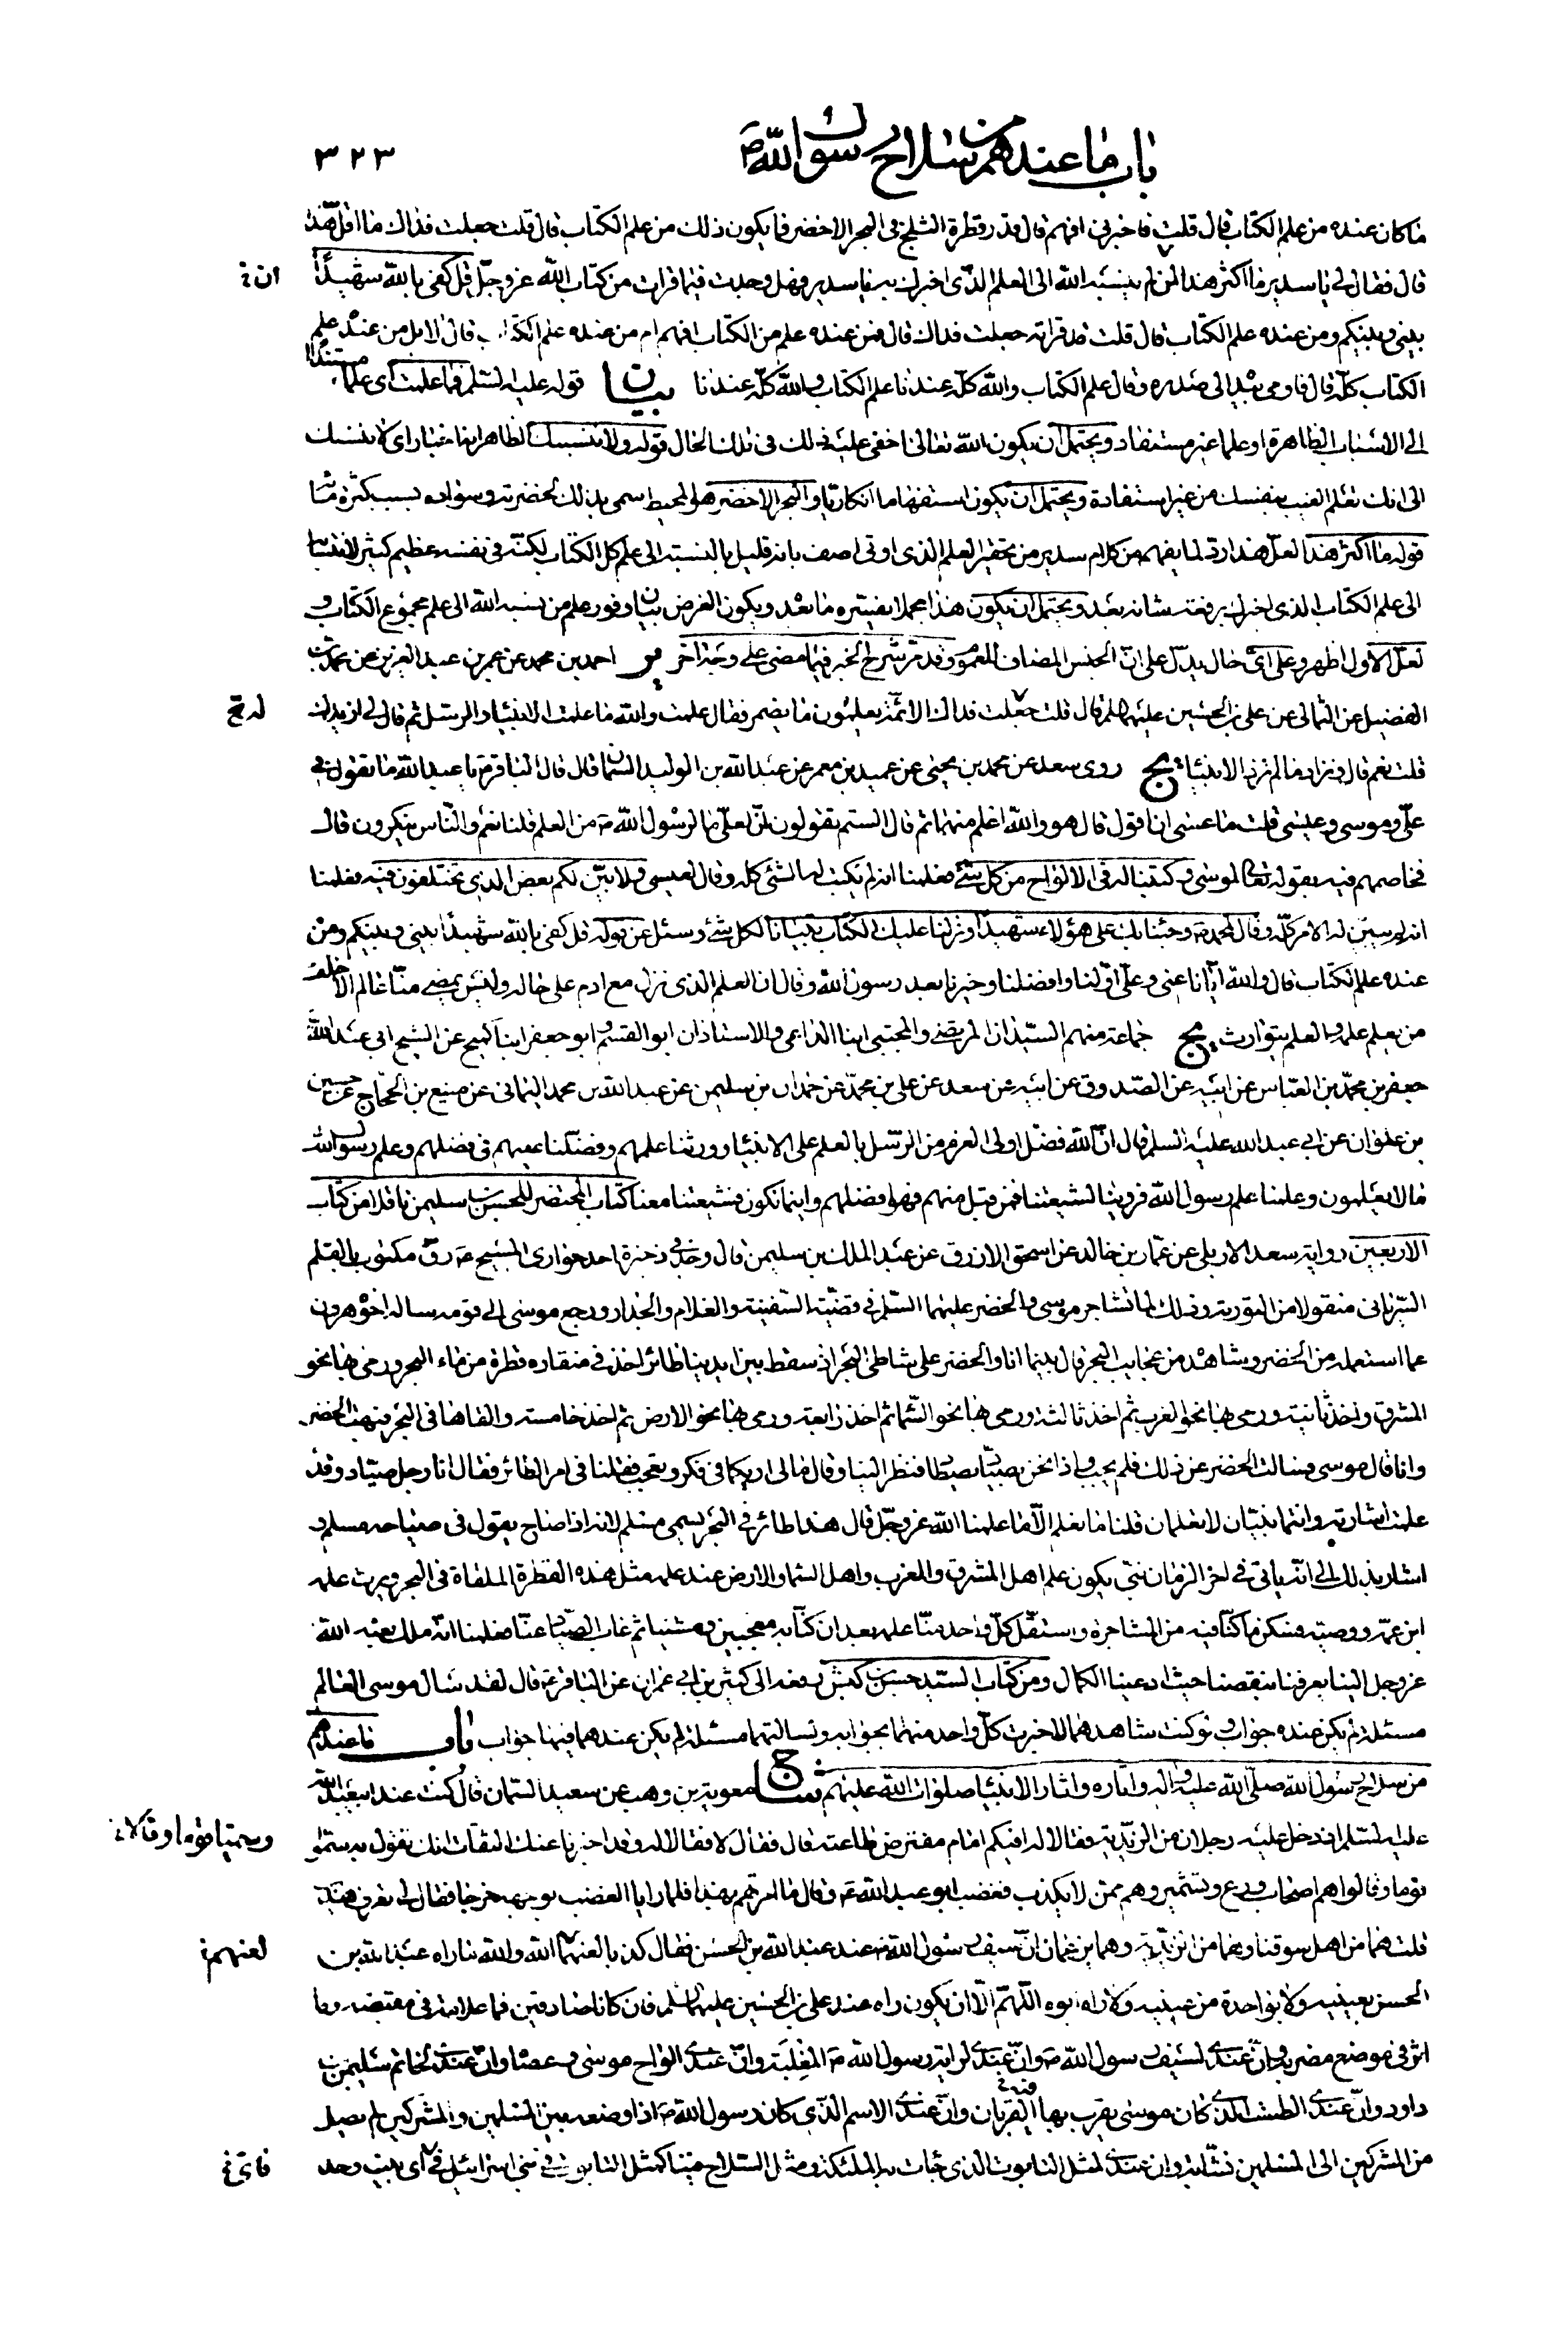 باب ما عندهم من سلاح رسول الله ص
٣٢٣
ما كان عنده من علم الكتاب قال قلت فاخبرنى افهم قال قدر قطرة الثلج فى البحر الاخضر فما يكون ذلك من علم الكتاب قال قلت جعلت فداك ما اقل هذا
قال فقال لى يا سدير ما اكثر هذا لمن لم ينسبه الله الى العلم الذى اخبرك به يا سدير فهل وجدت فيما قرات من كتاب الله عز وجل قل كفى بالله شهيدا
ان خ
بينى وبينكم ومن عنده علم الكتاب قال قلت قد قراته جعلت فداك قال فمن عنده علم من الكتاب افهم ام من عنده علم الكتاب قال لا بل من عنده علم
الكتاب كله قال فاومى بيده الى صدره وقال علم الكتاب والله كله عندنا علم الكتاب والله كله عندنا بيان قوله عليه السلم فما علمت اى علما مستندا
الى الاسباب الظاهرة او علما غير مستفاد ويحتمل ان يكون الله تعالى اخفى عليه ذلك فى تلك الحال قوله ولا ننسبك الظاهر انه اخبار اى لا ننسبك
الى انك تعلم الغيب بنفسك من غير استفادة ويحتمل ان يكون استفهاما انكاريا والبحر الاخضر هو المحيط سمى بذلك لخضرته وسواده بسبب كثرة مائه
قوله ما اكثر هذا لعل هذا رد لما يفهم من كلام سدير من تحقير العلم الذى اوتى اصف بانه قليل بالنسبة الى علم كل الكتاب لكنه فى نفسه عظيم كثير لانتسابه
الى علم الكتاب الذى اخبرك برفعة شانه بعد ويحتمل ان يكون هذا مجملا يفسره ما بعده ويكون الغرض بيان وفور علم من نسبه الله الى علم مجموع الكتاب و
لعل الاول اظهر وعلى اى حال يدل على ان الجنس المضاف للعموم وقد مر شرح الخبر فيما مضى على وجه اخر ير احمد بن محمد عن عمر بن عبد العزيز عن محمد بن
الفضيل عن الثمالى عن على بن الحسين عليهما السلم قال قلت جعلت فداك الائمة يعلمون ما يضمر فقال علمت والله ما علمت الانبياء والرسل ثم قال لى ازيدك
له خ
قلت نعم قال ونزاد ما لم تزد الانبياء يج روى سعد عن محمد بن يحيى عن عميد بن معمر عن عبد الله بن الوليد السمان قال قال الباقر ع يا عبد الله ما تقول فى
على وموسى وعيسى قلت ما عسى ان اقول قال هو والله اعلم منهما ثم قال الستم تقولون ان لعلى ما لرسول الله ص من العلم قلنا نعم والناس ينكرون قال
فخاصمهم فيه بقوله تعالى لموسى وكتبنا له فى الالواح من كل شئ فعلمنا انه لم يكتب له الشئ كله وقال لعيسى ولابين لكم بعض الذى تختلفون فيه فعلمنا
انه لم يبين له الامر كله وقال لمحمد ص وجئنا بك على هؤلاء شهيدا ونزلنا عليك الكتاب تبيانا لكل شئ وسئل عن قوله قل كفى بالله شهيدا بينى وبينكم ومن
عنده علم الكتاب قال والله ايانا عنى وعلى اولنا وافضلنا وخيرنا بعد رسول الله وقال ان العلم الذى نزل مع ادم على حاله وليس يمضى منا عالم الا خلف
من يعلم علمه والعلم يتوارث يج جماعة منهم السيدان المرتضى والمجتبى ابنا الداعى والاستاذان ابو القسم وابو جعفر ابنا كميح عن الشيخ ابى عبد الله
جعفر بن محمد بن العباس عن ابيه عن الصدوق عن ابيه عن سعد عن على بن محمد عن حمدان بن سليمن عن عبد الله بن محمد اليمانى عن منيع بن الحجاج عن حسين
بن علوان عن ابى عبد الله عليه السلم قال ان الله فضل اولى العزم من الرسل بالعلم على الانبياء وورثنا علمهم وفضلنا عليهم فى فضلهم وعلم رسول الله
ما لا يعلمون وعلمنا علم رسول الله فروينا لشيعتنا فمن قبل منهم فهو افضلهم واينما نكون فشيعتنا معنا كتاب المحتضر للحسن بن سليمن نافلا من كتاب
الاربعين رواية سعد الاربلى عن عمار بن خالد عن اسحق الازرق عن عبد الملك بن سليمن قال وجد فى ذخيرة احد حوارى المسيح ع رق مكتوب بالقلم
السريانى منقولا من التورية وذلك لما تشاجر موسى والخضر عليهما السلم فى قضية السفينة والغلام والجدار ورجع موسى الى قومه ساله اخوه هرون
عما استعلمه من الخضر وشاهده من عجايب البحر قال بينما انا والخضر على شاطئ البحر اذ سقط بين ايدينا طائر اخذ فى منقاره قطرة من ماء البحر ورمى بها نحو
المشرق واخذ ثانية ورمى بها نحو المغرب ثم اخذ ثالثة ورمى بها نحو السماء ثم اخذ رابعة ورمى بها نحو الارض ثم اخذ خامسة والقاها فى البحر فبهت الخضر
وانا قال موسى فسالت الخضر عن ذلك فلم يجب واذا نحن بصياد يصطاد فنظر الينا وقال ما لى اريكما فى فكر وتعجب فقلنا فى امر الطائر فقال انا رجل صياد وقد
علمت اشارته وانتما نبيان لا تعلمان قلنا ما نعلم الا ما علمنا الله عز وجل قال هذا طائر فى البحر يسمى مسلم لانه اذا صاح يقول فى صياحه مسلم و
اشار بذلك الى انه ياتى فى اخر الزمان نبى يكون علم اهل المشرق والمغرب واهل السماء والارض عند علمه مثل هذه القطرة الملقاة فى البحر ويرث علمه
ابن عمه ووصيه فسكن ما كنا فيه من المشاجرة واستقل كل واحد منا علمه بعد ان كنا به معجبين ومشينا ثم غاب الصياد عنا فعلمنا انه ملك بعثه الله
عز وجل الينا يعرفنا بنقصنا حيث ادعينا الكمال ومن كتاب السيد حسن بن كبش رفعه الى كثير بن ابى عمران عن الباقر ع قال لقد سال موسى العالم
مسئلة لم يكن عنده جواب ولو كنت شاهدهما لاخبرت كل واحد منهما بجوابه ولسالتهما مسئلة لم يكن عندهما فيها جواب باب ما عندهم
من سلاح رسول الله صلى الله عليه واله واثاره واثار الانبياء صلوات الله عليهم ج معوية بن وهب عن سعيد السمان قال كنت عند ابى عبد الله
عليه السلم اذ دخل عليه رجلان من الزيدية فقالا له افيكم امام مفترض طاعته قال فقال لا فقالا له وقد اخبرنا عنك الثقات انك تقول به وسموا
وسميا قوما وقالا خ
قوما وقالوا هم اصحاب ورع وتشمير وهم ممن لا يكذب فغضب ابو عبد الله ع وقال ما امرتهم بهذا فلما رايا الغضب بوجهه خرجا فقال لى تعرف هذين
قلت هما من اهل سوقنا وهما من الزيدية وهما يزعمان ان سيف رسول الله ص عند عبد الله بن الحسن فقال كذبا لعنهما الله والله ما راه عبد الله بن
لعنهم خ
الحسن بعينيه ولا بواحدة من عينيه ولا راه ابوه اللهم الا ان يكون راه عند على بن الحسين عليهما السلم فان كانا صادقين فما علامة فى مقبضه وما
اثر فى موضع مضربه وان عندى لسيف رسول الله ص وان عندى لراية رسول الله ص المغلبة وان عندى الواح موسى وعصاه وان عندى لخاتم سليمن بن
داود وان عندى الطشت الذى كان موسى يقرب بها القربان وان عندى الاسم الذى كان رسول الله ص اذا وضعه بين المسلمين والمشركين لم يصل
من المشركين الى المسلمين نشابة وان عندى لمثل التابوت الذى جاءت به الملئكة ومثل السلاح فينا كمثل التابوت فى بنى اسرائيل فى اى بيت وجد